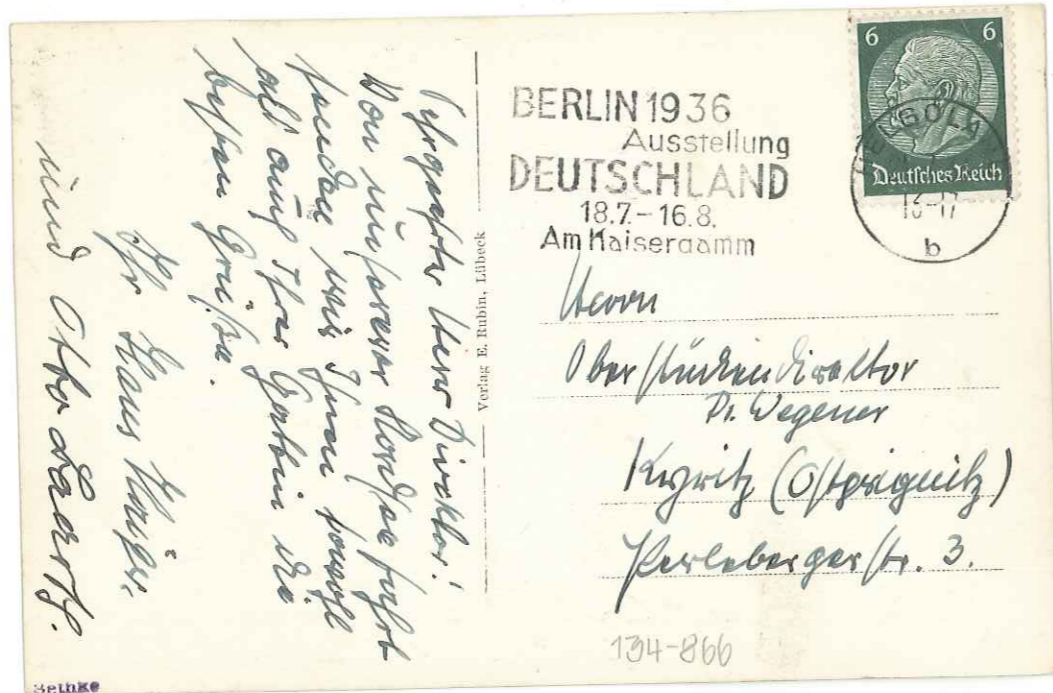 Sehrgeehrter Herr Direktor!
Von unserer Nordseefahrt
senden wir Ihnen sowohl
als auch Ihrer Gattin die
besten Grüße.
Ihr Hans
und Otto
Verlag E. Rubin, Lübeck
BERLIN 1936
Ausstellung
DEUTSCHLAND
18.7.-16.8.
Am Kaiserdamm
6 6
Deutsches Reich
HELGOLAND
16-17
b
Herrn
Oberstudiendirektor
Dr. Wegener
Kyritz (Ostprignitz)
Perlebergerstr. 3.
134-866
Bethke